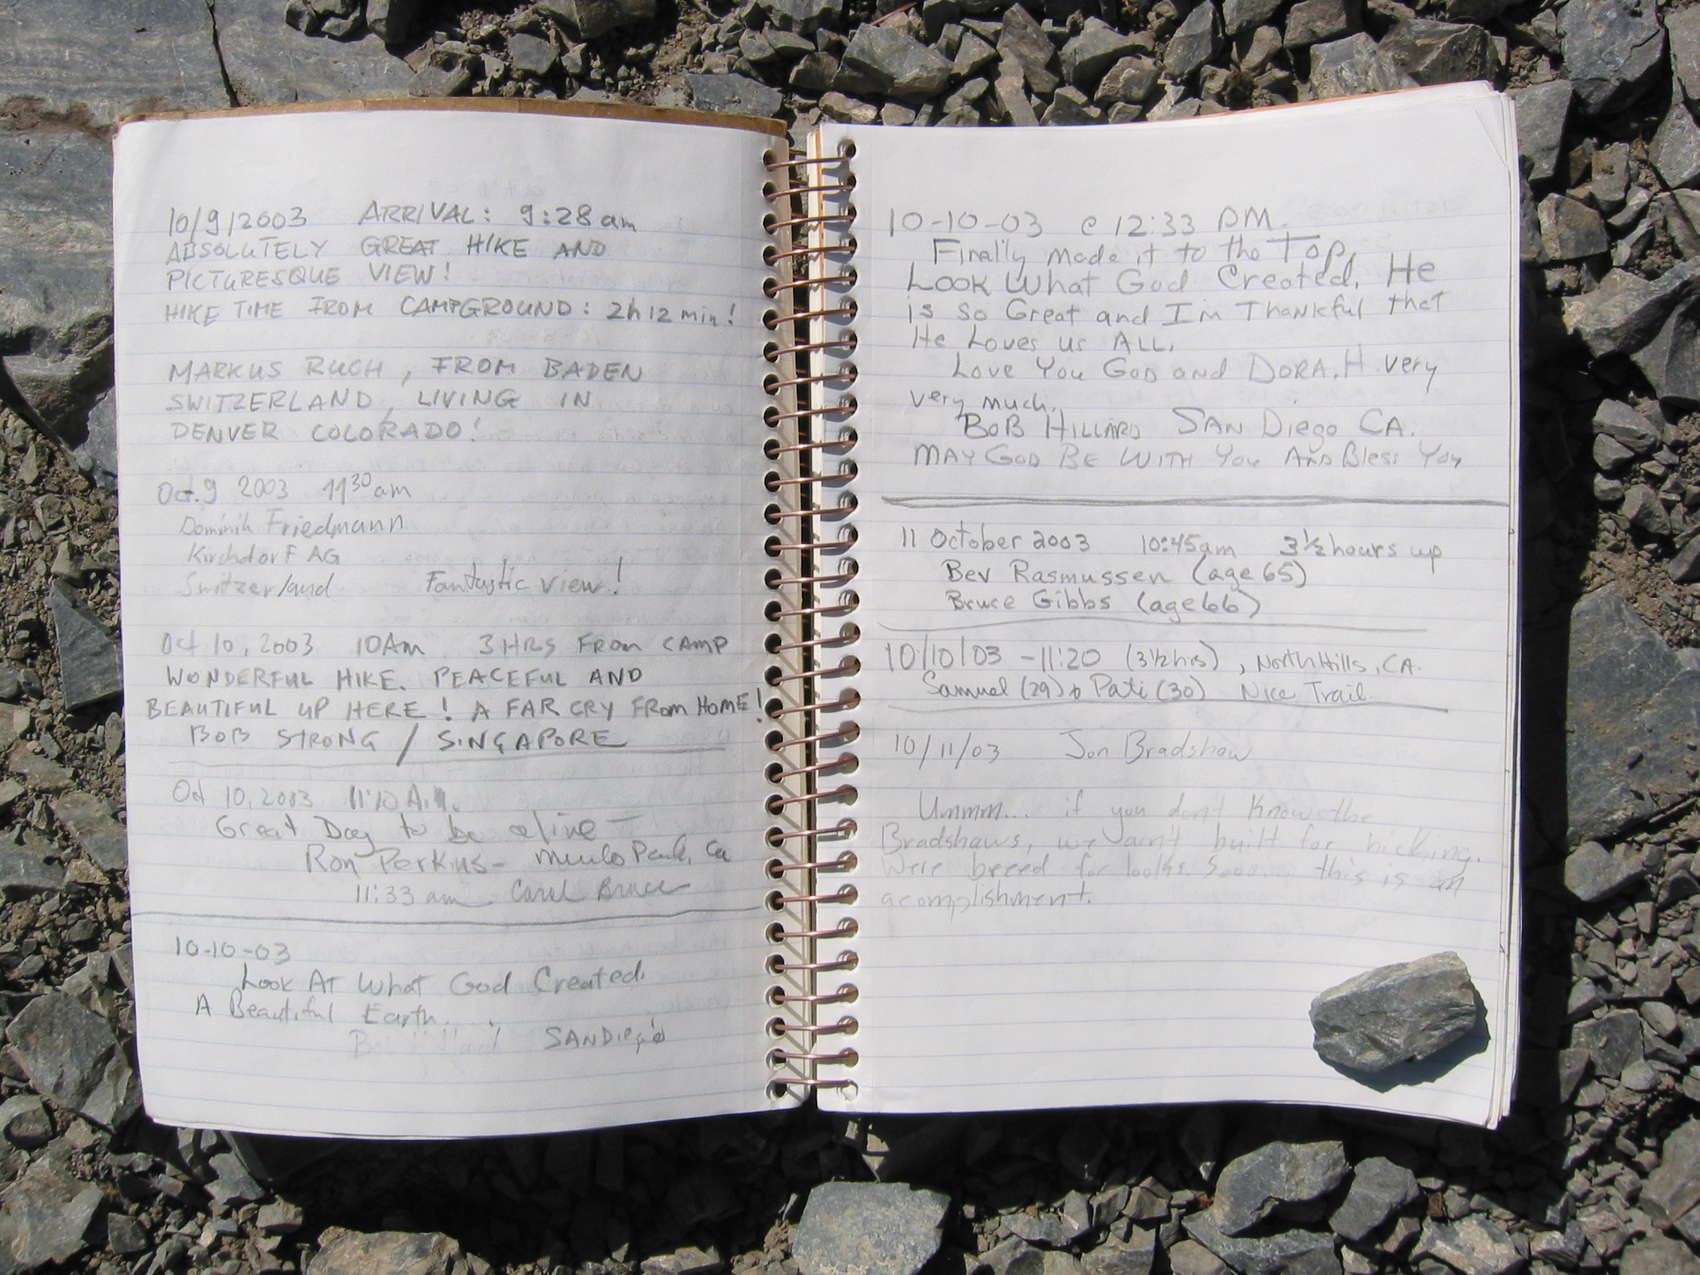 10/9/2003 ARRIVAL: 9:28 am
ABSOLUTELY GREAT HIKE AND
PICTURESQUE VIEW!
HIKE TIME FROM CAMPGROUND: 2h 12 min!
MARKUS RUCH, FROM BADEN
SWITZERLAND, LIVING IN
DENVER COLORADO!
Oct. 9 2003 11 30 am
Dominik Friedmann
Kirchdorf AG
Switzerland Fantastic view!
Oct 10, 2003 10 Am 3 HRS FROM CAMP
WONDERFUL HIKE. PEACEFUL AND
BEAUTIFUL UP HERE! A FAR CRY FROM HOME!
BOB STRONG / SINGAPORE
Oct 10, 2003 11:10 A.M.
Great Day to be alive –
Ron Perkins – Menlo Park, Ca
11:33 am Carol Bruce
10-10-03
Look At What God Created.
A Beautiful Earth.
SANDiego
10-10-03 @ 12:33 PM.
Finally made it to the Top,
Look What God Created. He
is so Great and I'm Thankful that
He Loves us ALL.
Love You GOD and DORA.H very
very much.
BOB HILLARD SAN Diego CA.
MAY GOD BE WITH You AND Bless You
11 October 2003 10:45am 3½ hours up
Bev Rasmussen (age 65)
Bruce Gibbs (age 66)
10/10/03 – 11:20 (3½ hrs), North Hills, CA.
Samuel (29) & Pati (30) Nice Trail.
10/11/03 Jon Bradshaw
Ummm... if you don't know the
Bradshaws, we ain't built for hicking.
We're breed for looks. Sooo... this is an
acomplishment.